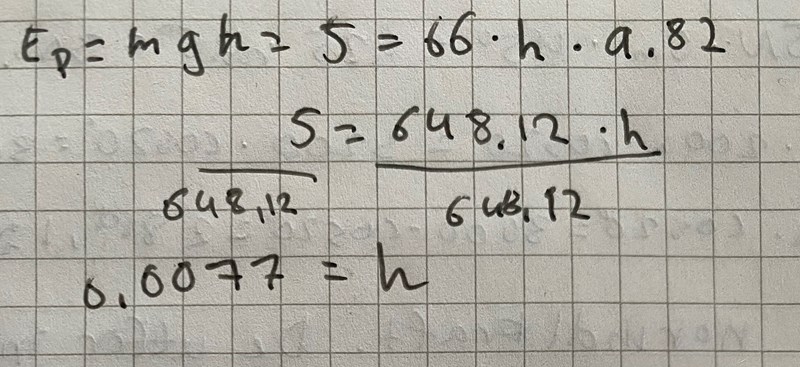 Ep = mgh = 5 = 66 · h · 9.82
5 = 648.12 · h
648,12 648.12
0.0077 = h